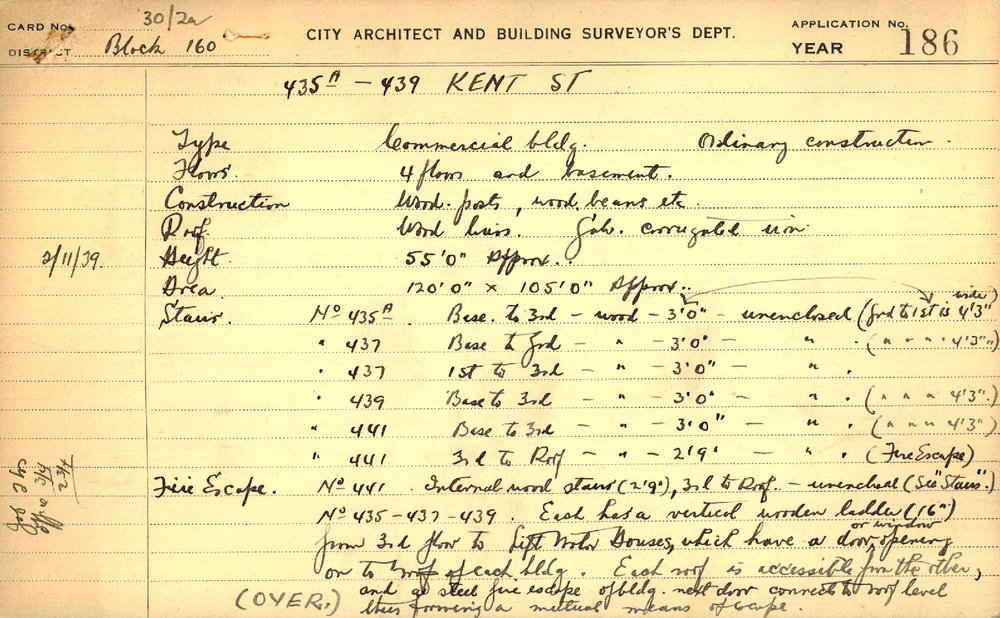 CARD NO. 30/2a
CITY ARCHITECT AND BUILDING SURVEYOR'S DEPT.
APPLICATION NO.
DISTRICT Block 160
YEAR 186
435A – 439 KENT ST
Type Commercial bldg. Ordinary construction.
Floors. 4 floors and basement.
Construction Wood posts, wood beams etc
Roof. Wood Galv. corrugated iron
2/11/39. Height 55'0" Approx..
Area 120'0" × 105'0" Approx..
Stairs. No 435A. Base. to 3rd – wood – 3'0" – unenclosed (Grd to 1st is 4'3" wide)
" 437 Base to Grd – " – 3'0" – " . (" " " " 4'3")
" 437 1st to 3rd – " – 3'0" – " .
" 439 Base to 3rd – " – 3'0" – " . (" " " 4'3".)
" 441 Base to 3rd – " – 3'0" – " . (" " " 4'3")
" 441 3rd to Roof – " – 2'9" – " . (Fire Escape)
Fire Escape. No 441. Internal wood stairs (2'9"), 3rd to Roof. – unenclosed (See "Stairs".)
No 435–437–439. Each has a vertical wooden ladder (16")
from 3rd floor to Lift Motor Houses, which have a door or window opening
on to roof of each bldg. Each roof is accessible from the other,
and a steel fire escape of bldg. next door connects to roof level
(OVER.) thus forming a mutual means of escape.